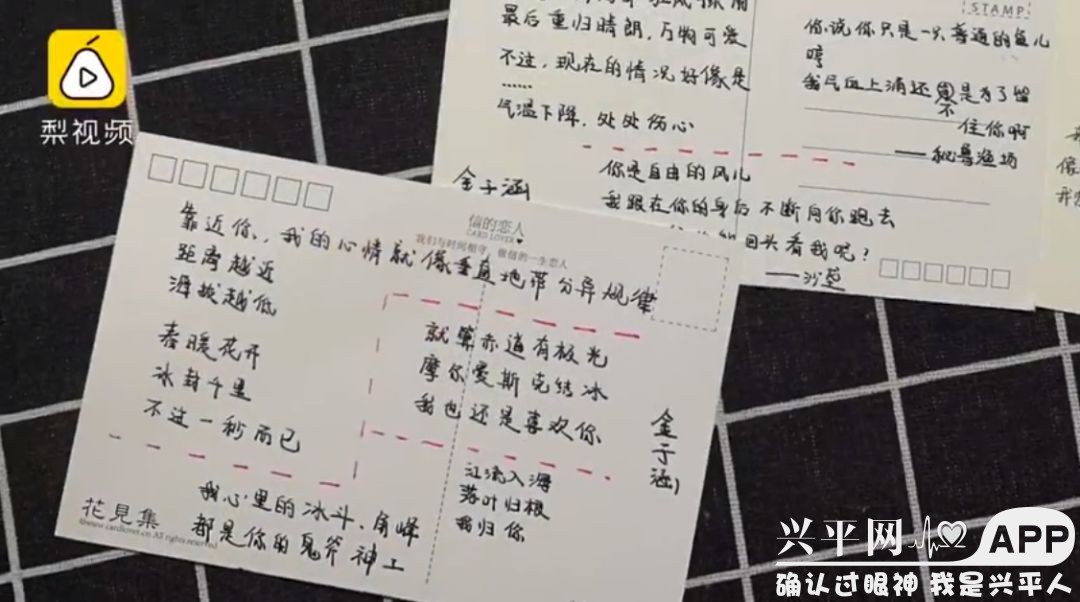 梨视频
最后重归晴朗，万物可爱
不过，现在的情况好像是
……
气温下降，处处伤心
金子涵
STAMP
你说你只是一只普通的鱼儿
哼
我气血上涌还不是为了留
住你啊
——秘鲁渔场
你是自由的风儿
我跟在你的身后不断向你跑去
回头看我呢？
——沙草
信的恋人
CARD LOVER
我们与时间相守，做信的一生恋人
靠近你，我的心情就像垂直地带分异规律
距离越近
海拔越低
春暖花开
冰封千里
不过一秒而已
就算赤道有极光
摩尔曼斯克结冰
我也还是喜欢你
金子涵
江流入海
落叶归根
我归你
我心里的冰斗、角峰
都是你的鬼斧神工
花見集
©www.cardlover.cn All rights reserved
兴平网 APP
确认过眼神 我是兴平人